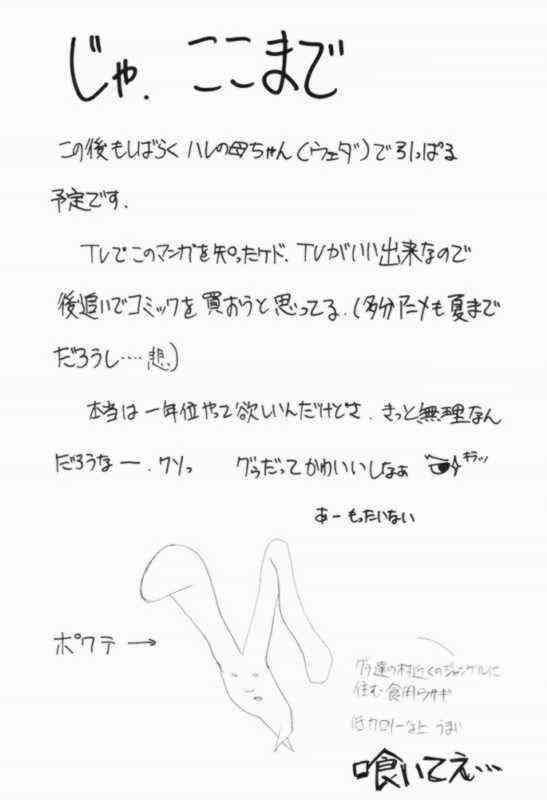 じゃ、ここまで
この後もしばらくハレの母ちゃん(ウェダ)で引っぱる
予定です.
TVでこのマンガを知ったケド、TVがいい出来なので
後追いでコミックを買おうと思ってる.(多分アニメも夏まで
だろうし….悲.)
本当は一年位やって欲しいんだけどさ、きっと無理なん
だろうなー、クソっ
グゥだってかわいいしなぁ
キラッ
あーもったいない
ポクテ→
グゥ達の村近くのジャングルに
住む食用ウサギ
低カロリーな上うまい
喰いてえ…